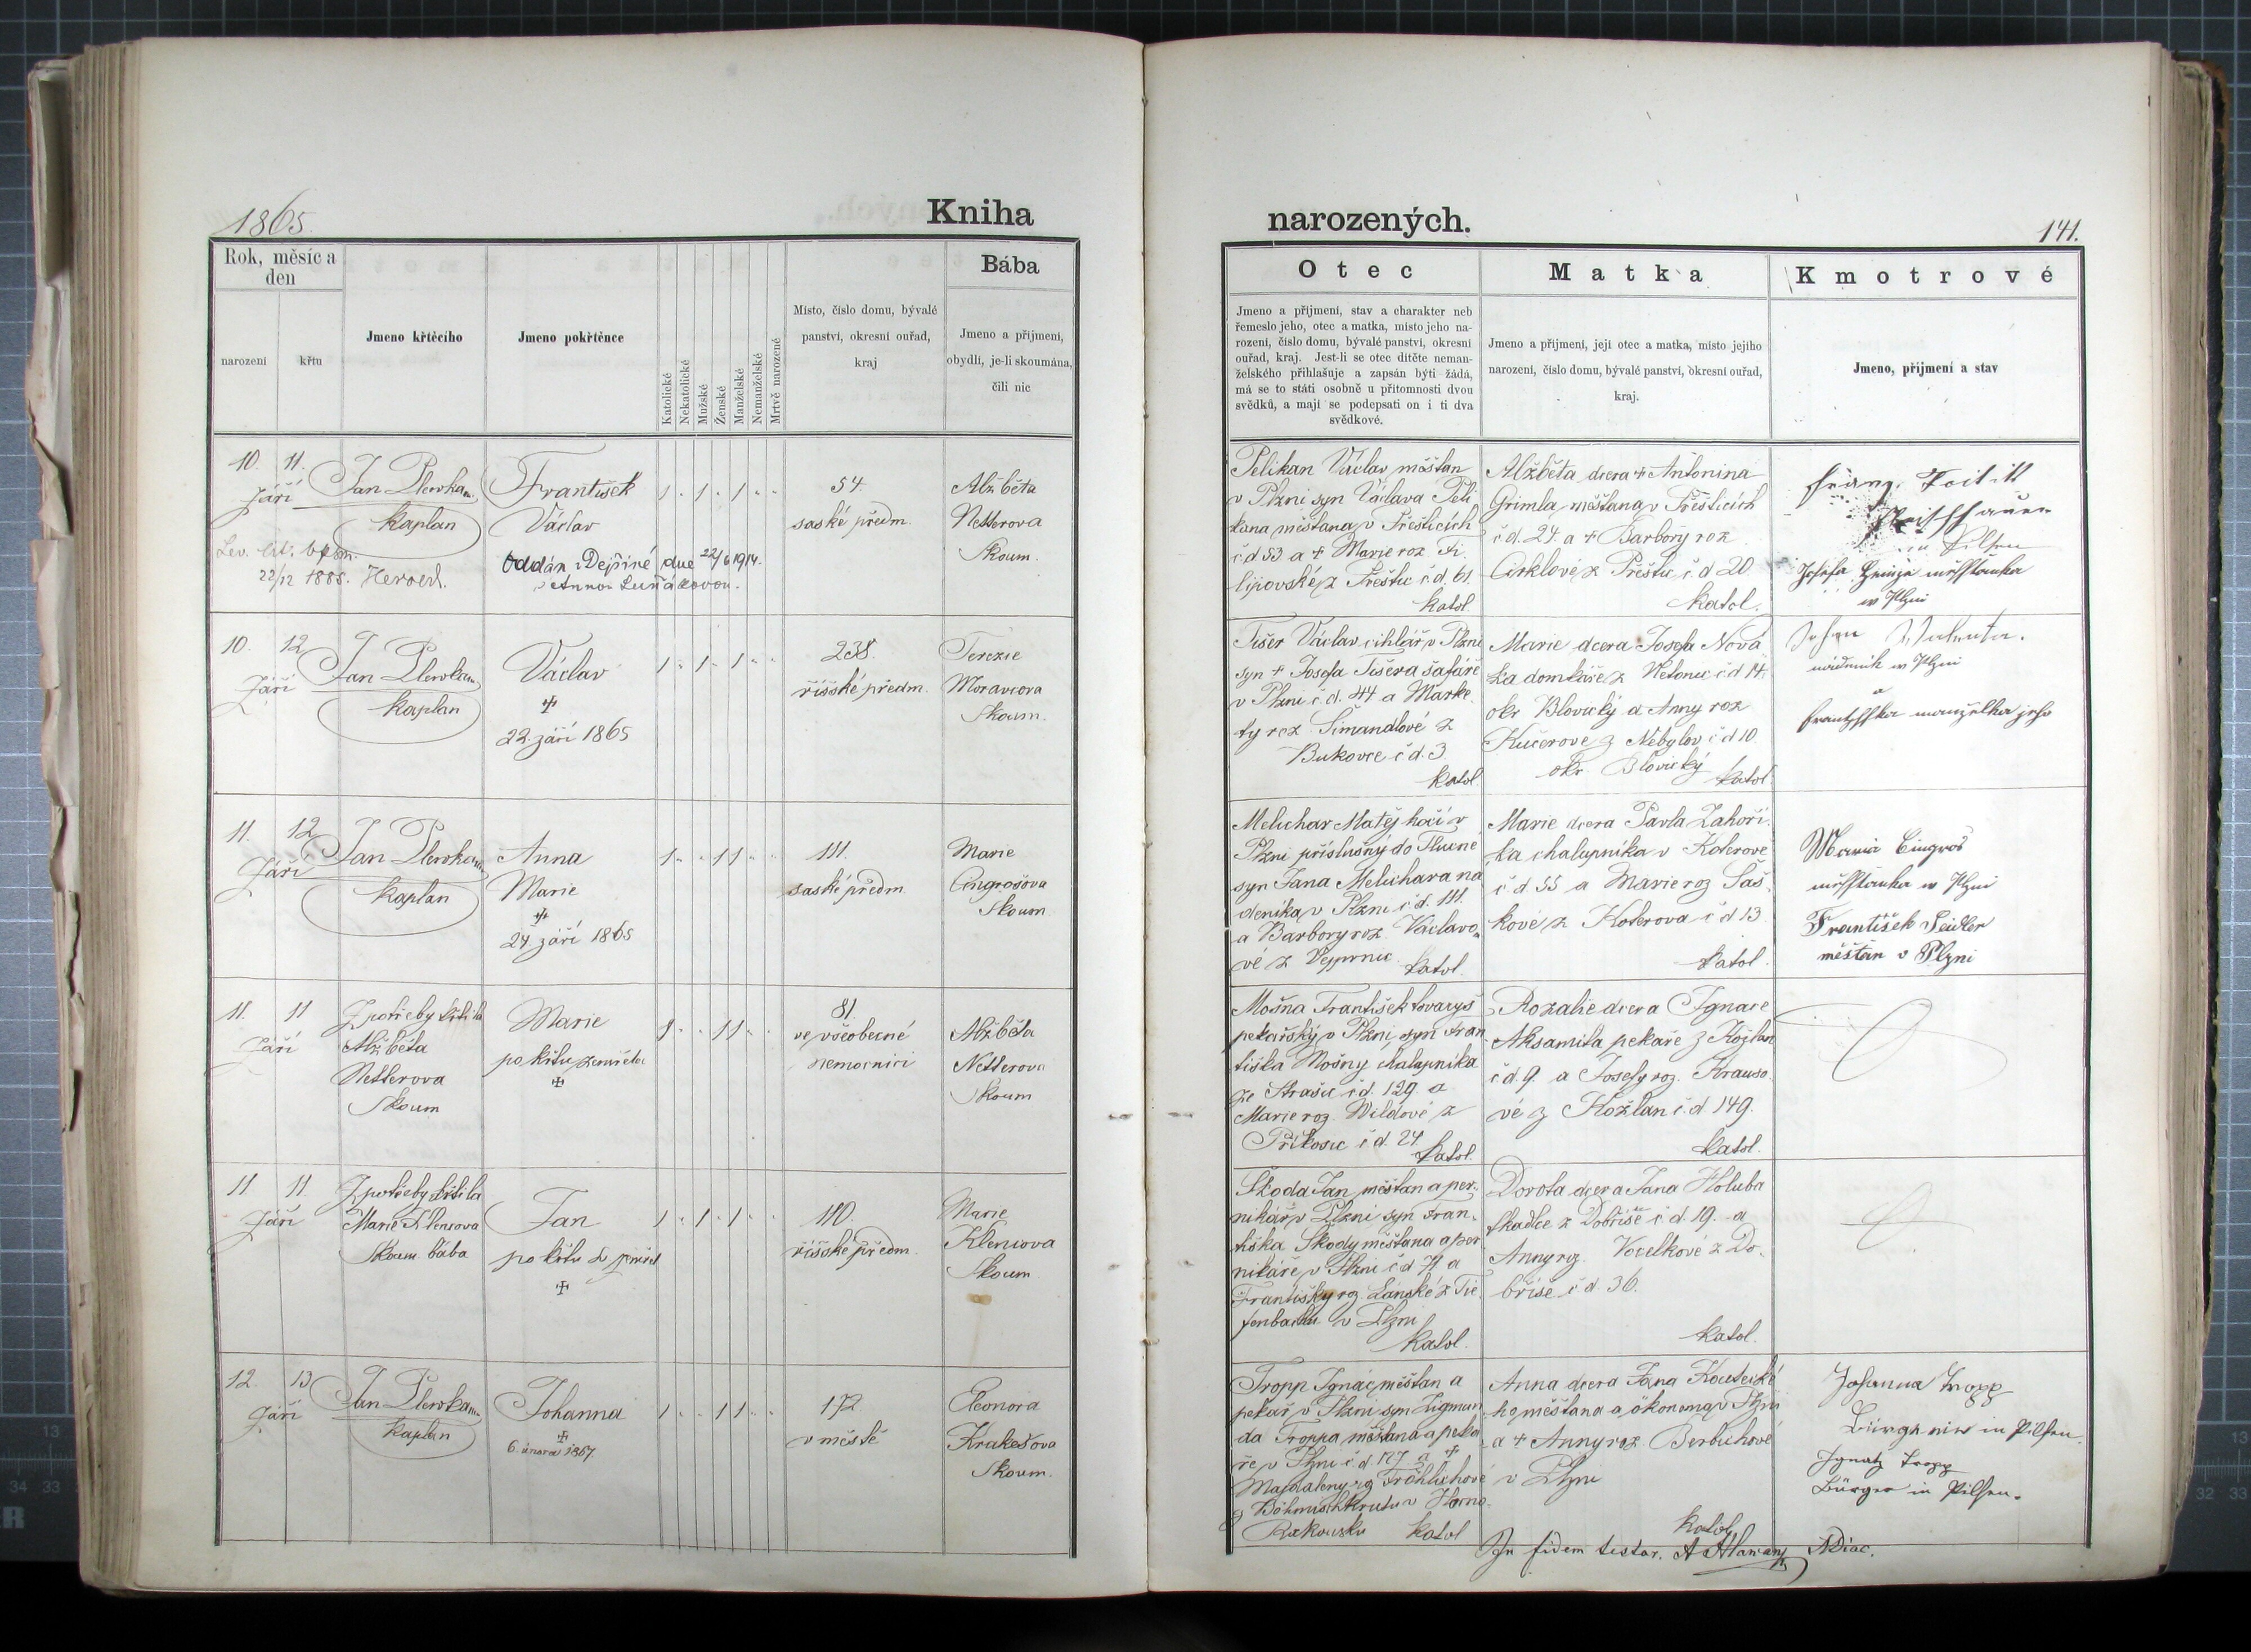 1865.
Kniha
Rok, měsíc a
den
narození
křtu
Jmeno křtěcího
Jmeno pokřtěnce
Katolické
Nekatolické
Mužské
Ženské
Manželské
Nemanželské
Mrtvě narozené
Místo, číslo domu, bývalé
panství, okresní ouřad,
kraj
Bába
Jmeno a příjmení,
obydlí, je-li skoumána,
čili nic
10. 11.
Září
Jan Plevka
kaplan
František
Václav
Oddán v Dejšině dne 22/6 1914.
s Annou Luňákovou.
22/12 1885.
1 " 1 " 1 " "
54.
saské předm.
Alžběta
Netterova
Skoum.
10. 12
Září
Jan Plevka
kaplan
Václav
+
22. září 1865
1 " 1 " 1 " "
238.
říšské předm.
Terezie
Moravcova
Skoum.
11. 12
Září
Jan Plevka
kaplan
Anna
Marie
+
24. září 1865
1 " " 1 1 " "
111.
saské předm.
Marie
Cingrošova
Skoum
11. 11
Září
Z potřeby křtila
Alžběta
Netterova
Skoum
Marie
po křtu zemřela
+
1 " " 1 1 " "
81.
ve všeobecné
nemocnici
Alžběta
Netterova
Skoum
11 11.
Září
Z potřeby křtila
Marie Klencova
Skoum bába
Jan
po křtu
+
1 " 1 " 1 " "
110.
říšské předm.
Marie
Klencova
Skoum.
12. 13
Září
Jan Plevka
kaplan
Johanna
+
6. února 1867
1 " " 1 1 " "
172
v městě
Eleonora
Krakešova
Skoum.
narozených.
141.
Otec
Jmeno a příjmení, stav a charakter neb
řemeslo jeho, otec a matka, místo jeho na-
rození, číslo domu, bývalé panství, okresní
ouřad, kraj. Jest-li se otec dítěte neman-
želského přihlašuje a zapsán býti žádá,
má se to státi osobně u přítomnosti dvou
svědků, a mají se podepsati on i ti dva
svědkové.
Matka
Jmeno a příjmení, její otec a matka, místo jejího
narození, číslo domu, bývalé panství, okresní ouřad,
kraj.
Kmotrové
Jmeno, příjmení a stav
Pelikan Václav měštan
v Plzni syn Václava Peli
kana měštana v Přešticích
č d 53 a + Marie roz. Fi
lipovské z Přeštic č. d. 61.
katol.
Alžběta dcera + Antonína
Grimla, měštana v Přešticích
č. d. 24. a + Barbory roz
Cirklové z Přeštic č. d 20
katol.
in Pilsen
w Plzni
Tišer Václav cihlář v Plzni
syn + Josefa Tišera šafáře
v Plzni č. d. 44 a Marke
ty roz. Šimandlové z
Bukovce č d. 3.
katol
Marie dcera Josefa Nová
ka domkáře z Netonic č d 14.
okr Blovický a Anny roz
Kučerové z Nebylov č d 10.
okr. Blovický katol
w Plzni
a
manželka jeho
Melichar Matěj kočí v
Plzni příslušný do Tlucné
syn Jana Melichara na
deníka v Plzni č. d. 111.
a Barbory roz. Václavo
vé z Vejprnic. katol.
Marie dcera Pavla Zahoří
ka chalupníka v Koterově
č. d 55 a Marie roz Šaš
kové z Koterova č d 13.
katol.
Maria Cingroš
w Plzni
František Seidler
měštan v Plzni
Mošna František tovaryš
pekařský v Plzni, syn Fran
tiška Mošny chalupníka
ze Strašic č d. 129. a
Marie roz. Wildové z
Příkosic č d. 24.
katol.
Rozalie dcera Ignace
Aksamita pekaře z Kožlan
č d 9. a Josefy roz. Krauso
vé z Kožlan č. d 149.
katol.
Škoda Jan měštan a per-
nikář v Plzni syn Fran-
tiška Škody měštana a per
nikáře v Plzni č d 71 a
Františky roz. Lánské z Tie
fenbachu v Plzni
katol.
Dorota dcera Jana Holuba
tkadlce z Dobříše č d 19. a
Anny roz. Vocelkové z Do-
bříše č d. 36.
katol.
Tropp Ignác měštan a
pekař v Plzni syn Zigmun
da Troppa měštana a peka
ře v Plzni č. d. 127 a +
Magdaleny roz Fröhlichové
z Böhmischkrutu v Horno
Rakousku katol
Anna dcera Jana Koutecké
ho měštana a ökonoma v Plzni
a + Anny roz Berbichové
v Plzni
katol.
Johanna Tropp
in Pilsen.
Ignatz Tropp
Bürger in Pilsen.
In fidem testor.